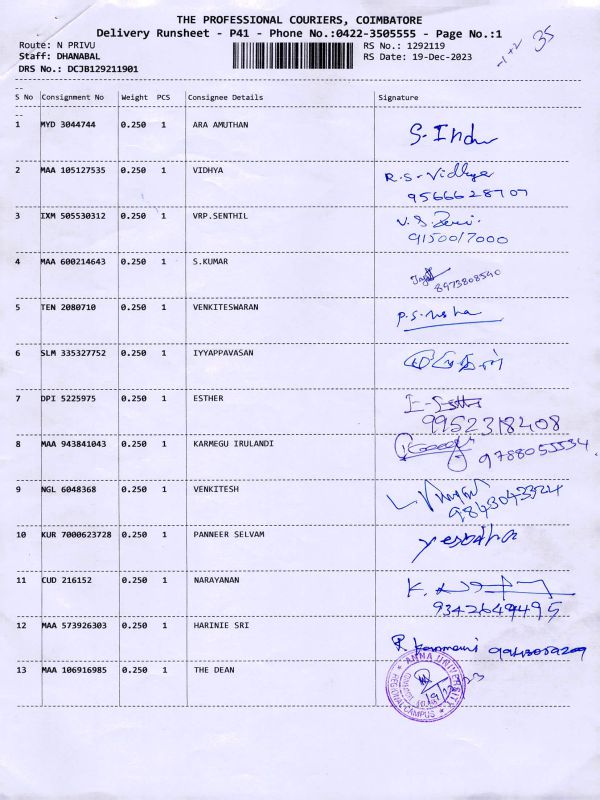 THE PROFESSIONAL COURIERS, COIMBATORE
Delivery Runsheet - P41 - Phone No.:0422-3505555 - Page No.:1
Route: N PRIVU RS No.: 1292119
Staff: DHANABAL RS Date: 19-Dec-2023
DRS No.: DCJB129211901
35
S No Consignment No Weight PCS Consignee Details Signature
1 MYD 3044744 0.250 1 ARA AMUTHAN
2 MAA 105127535 0.250 1 VIDHYA R.S-Vidhya
9566628707
3 IXM 505530312 0.250 1 VRP.SENTHIL
9150017000
4 MAA 600214643 0.250 1 S.KUMAR
8973808540
5 TEN 2080710 0.250 1 VENKITESWARAN P.S-usha
6 SLM 335327752 0.250 1 IYYAPPAVASAN
7 DPI 5225975 0.250 1 ESTHER
9952318408
8 MAA 943841043 0.250 1 KARMEGU IRULANDI
9788055534
9 NGL 6048368 0.250 1 VENKITESH
9843043324
10 KUR 7000623728 0.250 1 PANNEER SELVAM yesodha
11 CUD 216152 0.250 1 NARAYANAN
9342649495
12 MAA 573926303 0.250 1 HARINIE SRI
13 MAA 106916985 0.250 1 THE DEAN
ANNA UNIVERSITY
REGIONAL CAMPUS